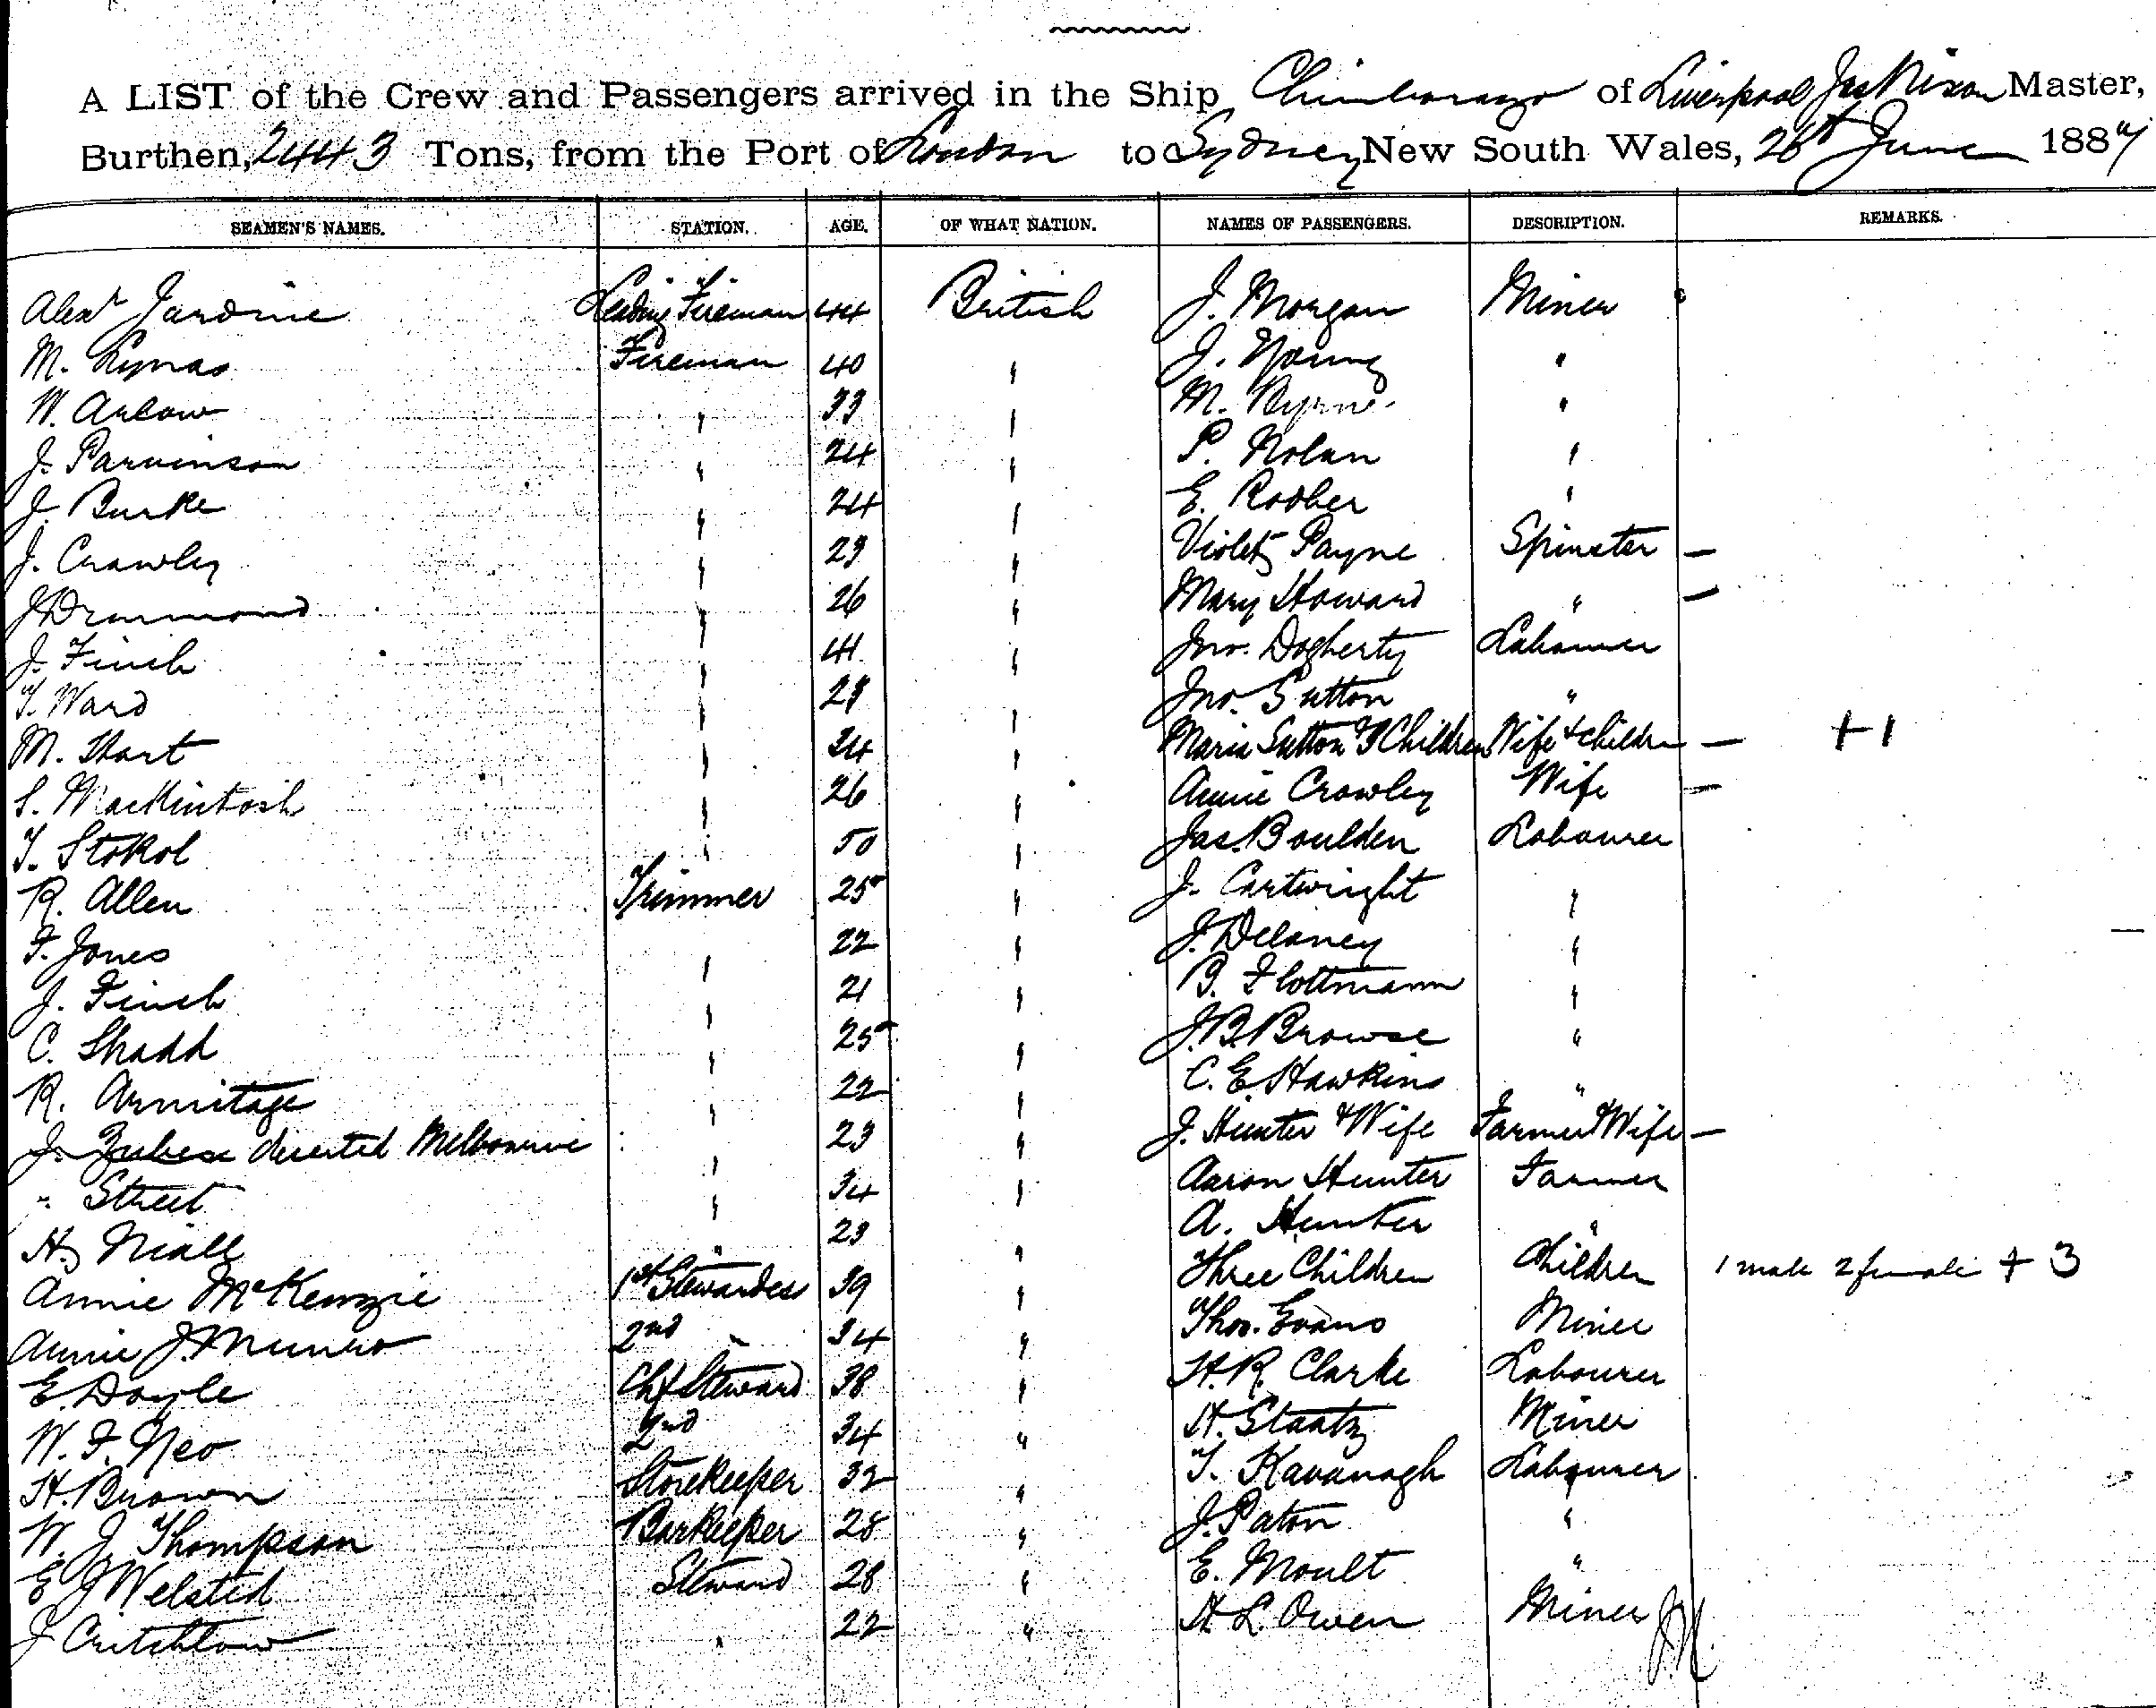 A LIST of the Crew and Passengers arrived in the Ship Chimborazo of Liverpool Jas Nixon Master,
Burthen, 2443 Tons, from the Port of London to Sydney New South Wales, 26th June 1887
SEAMEN'S NAMES. STATION. AGE. OF WHAT NATION. NAMES OF PASSENGERS. DESCRIPTION. REMARKS.
Alexr Jardine Leading Fireman 44 British J. Morgan Miner
M. Lynas Fireman 40 " J. Young "
W. Arlow " 33 " M. Byrne "
J. Parkinson " 24 " P. Nolan "
J. Burke " 24 " E. Roober "
J. Crawley " 29 " Violet Payne Spinster —
J Drummond " 26 " Mary Howard " —
J. Finch " 41 " Jno. Dogherty Labourer
T. Ward " 29 " Jno. Sutton "
M. Hart " 24 " Maria Sutton & Children Wife & Children — +1
S. Mackintosh " 26 " Annie Crowley Wife —
T. Stokol " 50 " Jas. Boulden Labourer
R. Allen Trimmer 25 " J. Cartwright "
F. Jones " 22 " J. Delaney "
J. Finch " 21 " B. Flottmann "
C. Shadd " 25 " J. B. Browse "
R. Armitage " 22 " C. E. Hawkins "
J. deserted Melbourne " 23 " J. Hunter & Wife Farmer & Wife —
" Street " 34 " Aaron Hunter Farmer
H. Niall " 23 " A. Hunter "
Annie McKenzie 1st Stewardess 39 " Three Children Children 1 male 2 female + 3
Annie J. Munro 2nd " 34 " Thos. Evans Miner
E. Doyle Chf Steward 38 " H. R. Clarke Labourer
W. F. Neo 2nd 34 " H. Staatz Miner
H. Brown Storekeeper 32 " T. Kavanagh Labourer
W. J. Thompson Barkeeper 28 " J. Paton "
E J Welsted Steward 28 " E. Moult "
J Critchlow " 22 " H. L. Owen Miner